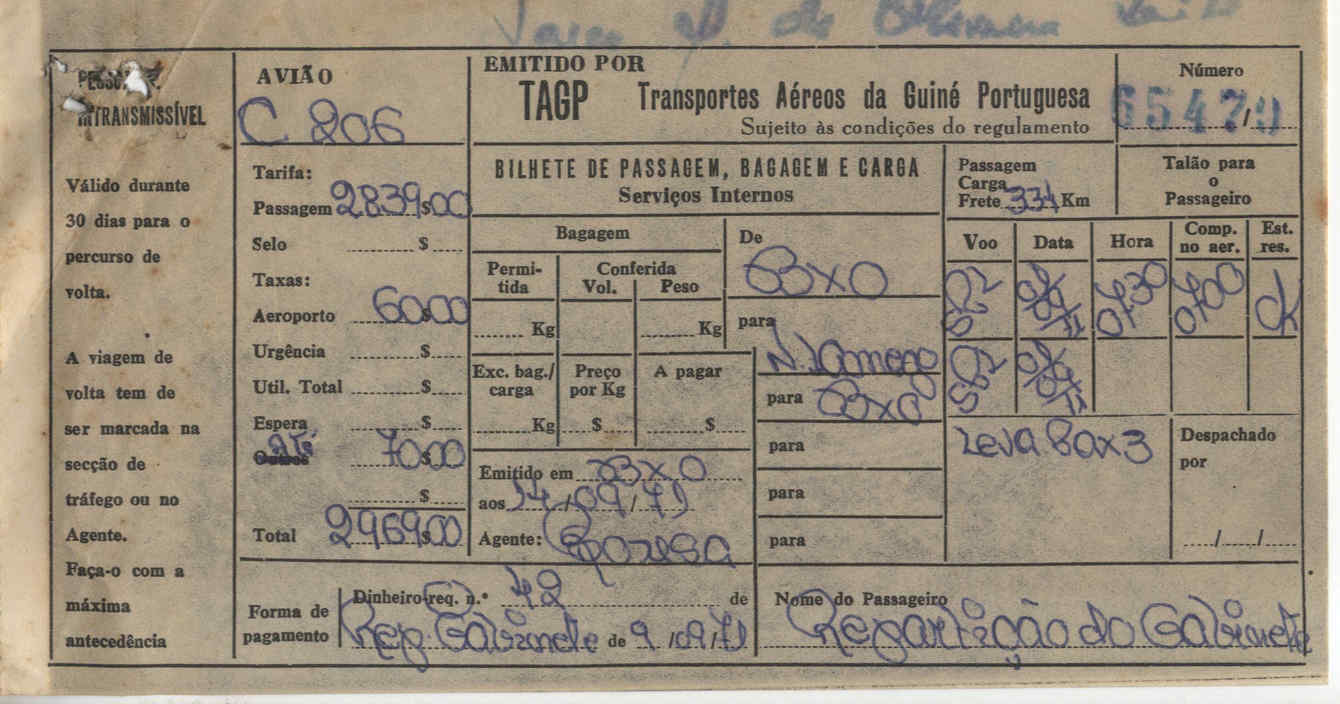 de Oliveira
PESSOAL E
INTRANSMISSÍVEL
Válido durante
30 dias para o
percurso de
volta.
A viagem de
volta tem de
ser marcada na
secção de
tráfego ou no
Agente.
Faça-o com a
máxima
antecedência
AVIÃO
C 206
Tarifa:
Passagem 2839$00
Selo $
Taxas:
Aeroporto 60$00
Urgência $
Util. Total $
Espera $
Outros 70$00
$
Total 2969$00
EMITIDO POR
TAGP Transportes Aéreos da Guiné Portuguesa
Sujeito às condições do regulamento
Número
65470
BILHETE DE PASSAGEM, BAGAGEM E CARGA
Serviços Internos
Passagem
Carga
Frete 334 Km
Talão para
o
Passageiro
Bagagem
Permitida
Conferida
Vol. Peso
Kg Kg
Exc. bag./
carga
Preço
por Kg
A pagar
Kg $ $
Emitido em BXO
aos 14/09/71
Agente:
De
BXO
para
N. Lamego
para BXO
para
para
para
Voo Data Hora Comp. no aer. Est. res.
0730 0700 OK
Leva Box 3
Despachado
por
/ /
Forma de
pagamento
Dinheiro-req. n.º 42 de
Rep. Gabinete de 9/09/71
Nome do Passageiro
Repartição do Gabinete